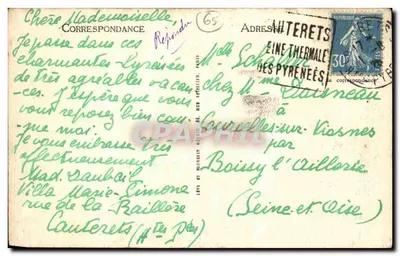 Chère Mademoiselle
CORRESPONDANCE
Répondu
65
ADRESSE
Je passe dans ces
charmantes Pyrénées
de très agréables vacan
ces. J'espère que vous
vous reposez bien com
me moi.
Je vous embrasse très
affectueusement
Mad. Daubail
Villa Marie-Simone
rue de la Raillère
Cauterets (Htes Pées)
CAUTERETS
REINE THERMALE
DES PYRENEES
30c
Melle
chez Mme Doisneau
à
-sur-Viosnes
par
Boissy l'Aillerie
(Seine et Oise)
CPAPHIL